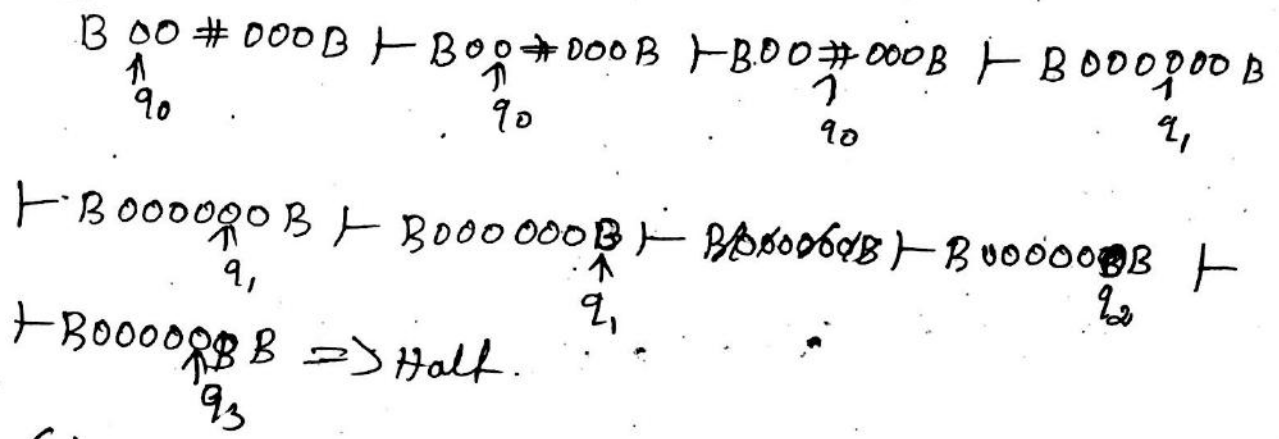 B 00 # 000B ⊢ B00#000B ⊢ B00#000B ⊢ B000000B
↑ ↑ ↑ ↑
q0 q0 q0 q1
⊢ B000000B ⊢ B000000B ⊢ ⊢ B00000BB ⊢
↑ ↑
q1 q1 q2
⊢ B00000BB ⇒ Halt.
↑
q3